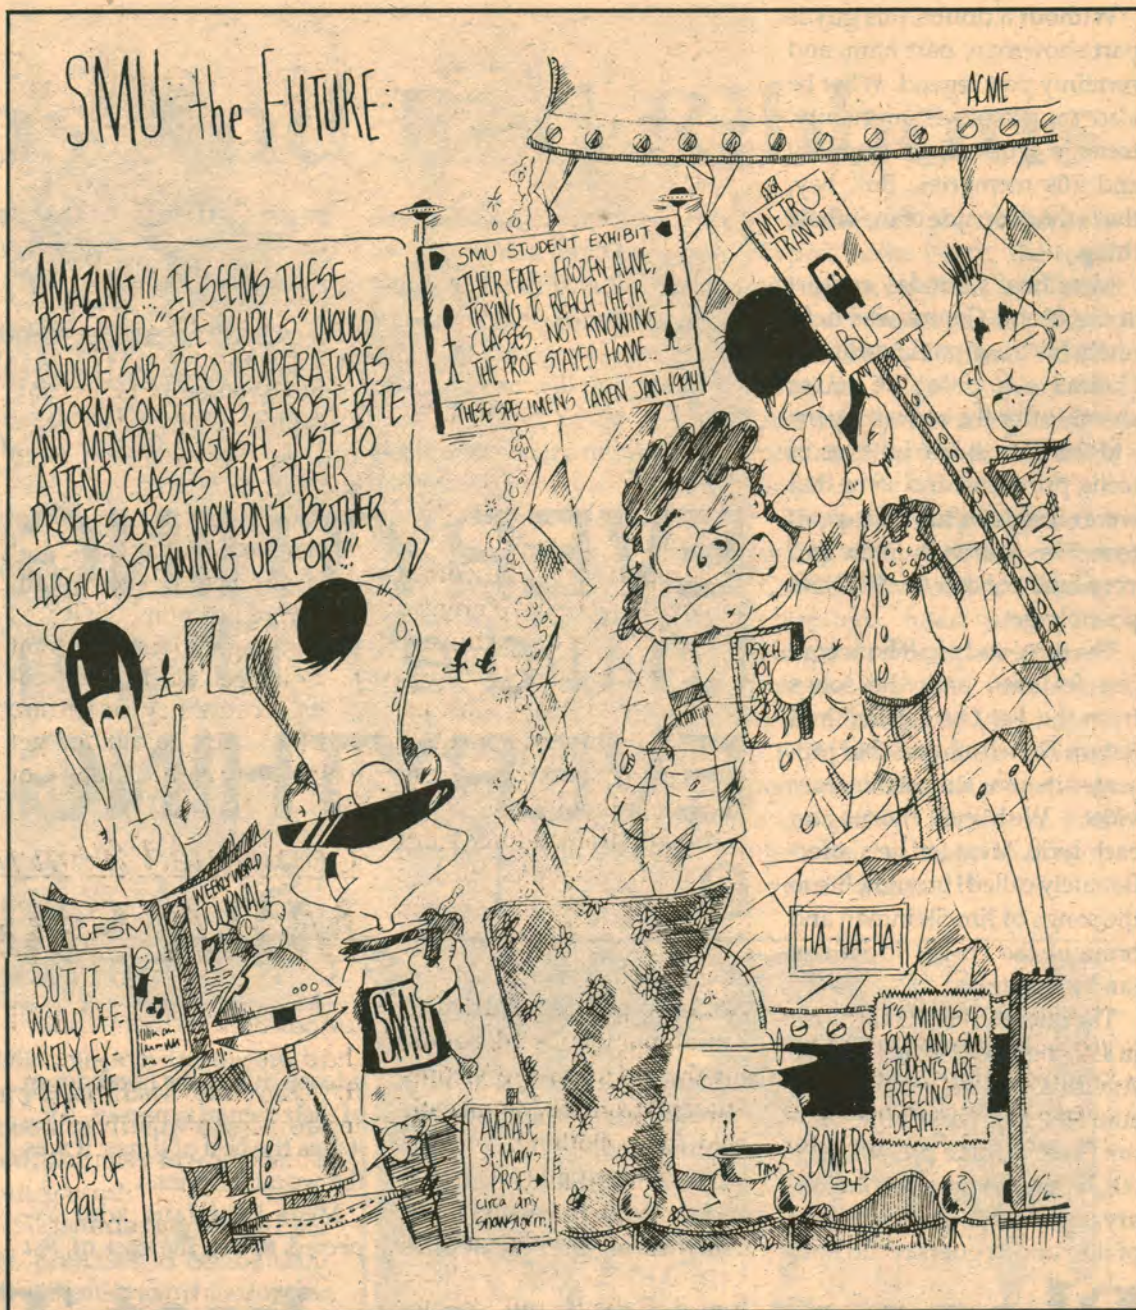 SMU the FUTURE:
ACME
AMAZING!!! IT SEEMS THESE
PRESERVED "ICE PUPILS" WOULD
ENDURE SUB ZERO TEMPERATURES
STORM CONDITIONS, FROST-BITE
AND MENTAL ANGUISH, JUST TO
ATTEND CLASSES THAT THEIR
PROFFESSORS WOULDN'T BOTHER
SHOWING UP FOR!!!
ILLOGICAL.
SMU STUDENT EXHIBIT
THEIR FATE: FROZEN ALIVE,
TRYING TO REACH THEIR
CLASSES.. NOT KNOWING
THE PROF STAYED HOME..
THESE SPECIMENS TAKEN JAN. 1994
METRO
TRANSIT
BUS
PSYCH
101
CFSM
WEEKLY WORLD
JOURNAL
BUT IT
WOULD DEF-
INITLY EX-
PLAIN THE
TUITION
RIOTS OF
1994
SMU
AVERAGE
St. Marys
PROF.
circa any
snowstorm.
HA-HA-HA
IT'S MINUS 40
TODAY AND SMU
STUDENTS ARE
FREEZING TO
DEATH...
TIM
BOWERS
94'